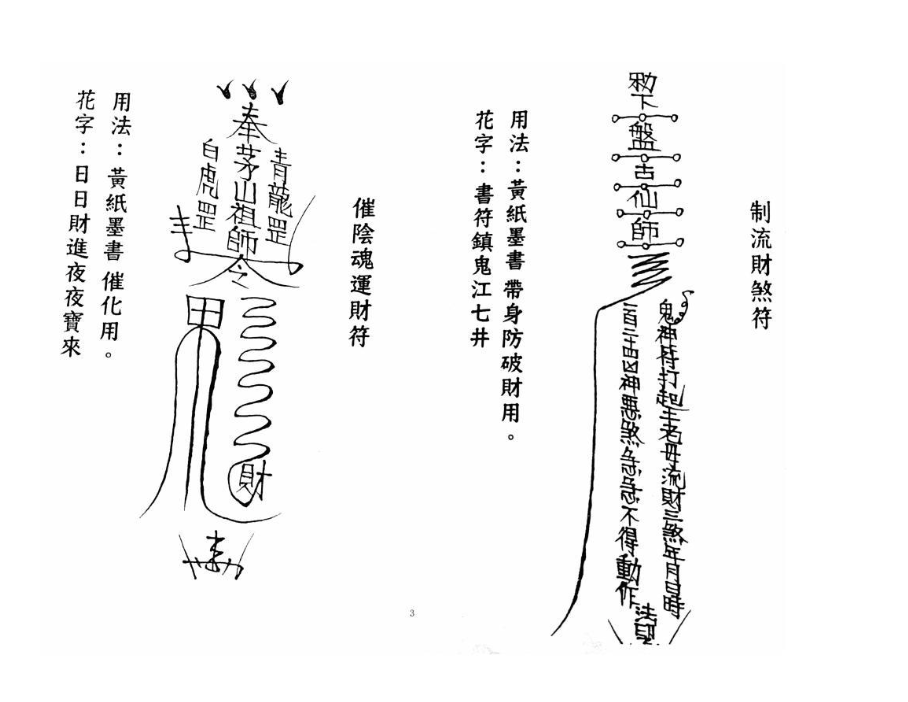 制流財煞符
勅下盤古仙師
鬼神符打起主名毋流財三煞年月日時
一百二十四凶神惡煞急急不得動作
法印
用法：黃紙墨書 帶身防破財用。
花字：書符鎮鬼江七井
催陰魂運財符
奉茅山祖師令
青龍罡
白虎罡
甲
財
用法：黃紙墨書 催化用。
花字：日日財進夜夜寶來
3